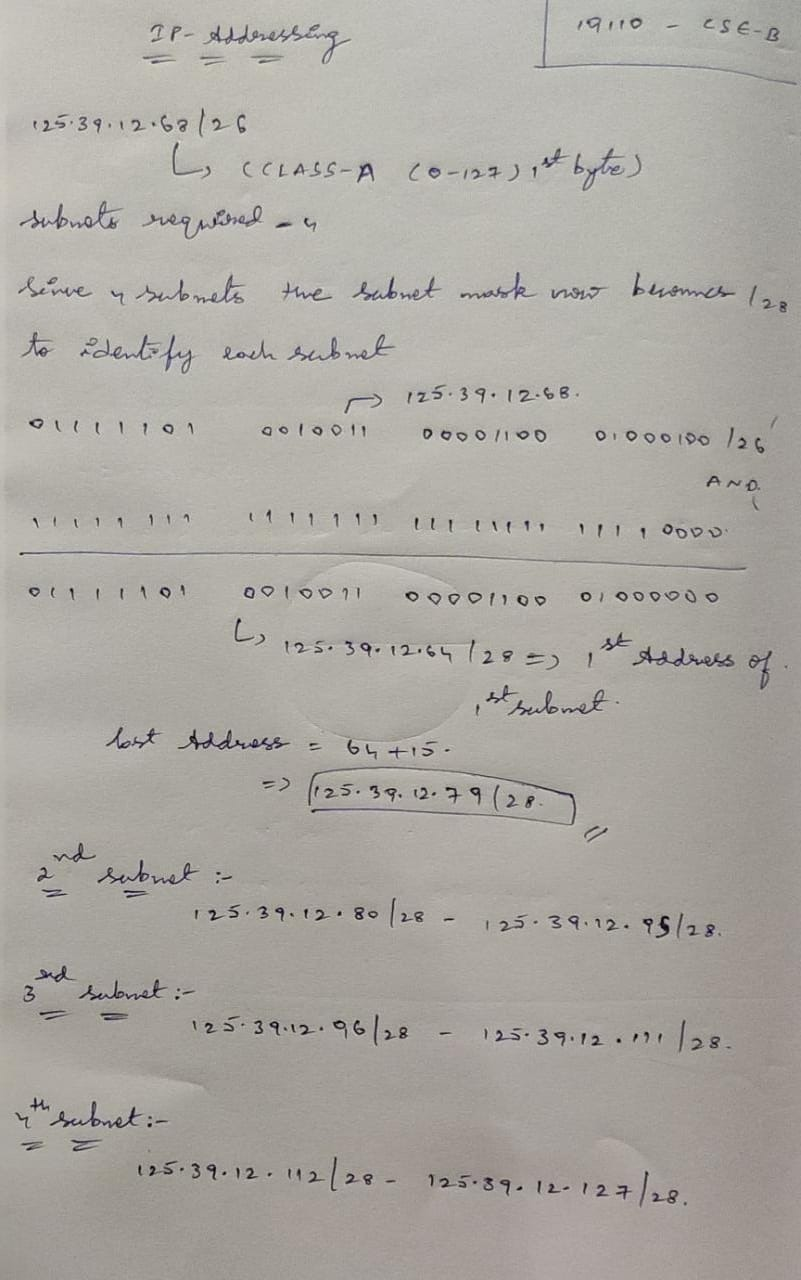 IP- Addressing
19110 - CSE-B
125.39.12.68/26
↳ (CLASS-A (0-127) 1st byte)
subnets required - 4
Since 4 subnets the subnet mask now becomes /28
to identify each subnet
↱ 125.39.12.68.
01111101 0010011 00001100 01000100 /26
AND.
11111111 1111111 11111111 11110000.
01111101 0010011 00001100 01000000
↳ 125.39.12.64/28 => 1st Address of
1st subnet.
last Address = 64+15.
=> 125.39.12.79/28.
2nd subnet :-
125.39.12.80/28 - 125.39.12.95/28.
3rd subnet :-
125.39.12.96/28 - 125.39.12.111/28.
4th subnet :-
125.39.12.112/28 - 125.39.12.127/28.